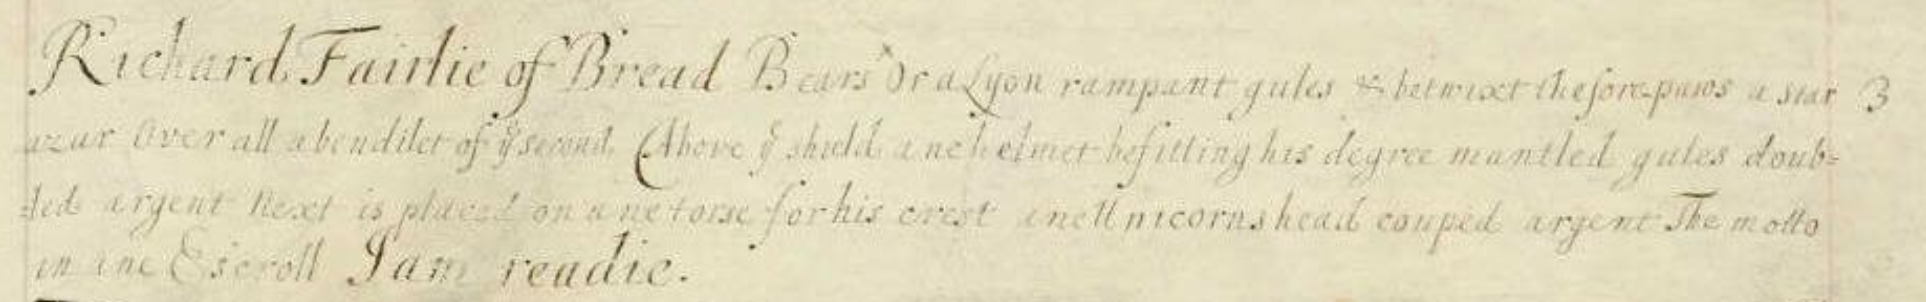 Richard Fairlie of Bread Bears Or a Lyon rampant gules & betwixt the fore paws a star 3
azur Over all a bendilet of ye second. (Above ye shield ane helmet befitting his degree mantled gules doub=
=led argent Next is placed on ane torse for his crest ane Unicorns head couped argent The motto
in ane Escroll I am readie.